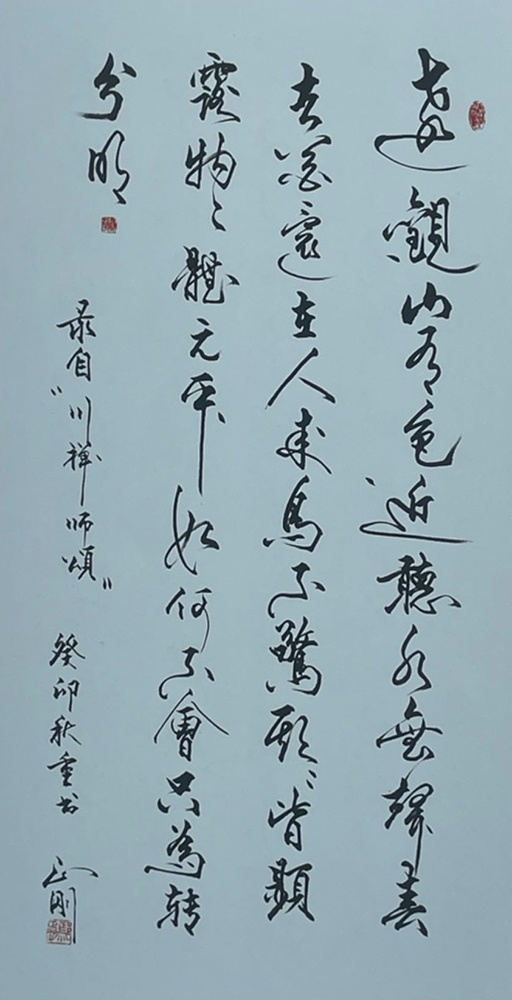 遠觀山有色近聽水無聲春
去花還在人來鳥不驚頭々皆顯
露物々體元平如何不會只為转
分明
录自"川禅師頌" 癸卯秋重书 正刚